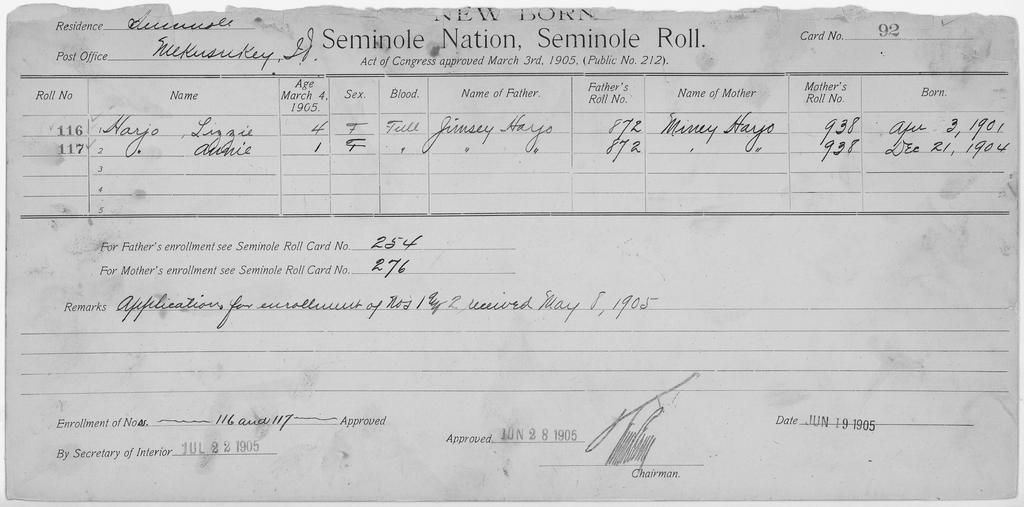 NEW BORN
Residence Seminole
Seminole Nation, Seminole Roll.
Card No. 92
Post Office Mekusukey, I.T.
Act of Congress approved March 3rd, 1905, (Public No. 212).
Roll No Name Age March 4, 1905. Sex. Blood. Name of Father. Father's Roll No. Name of Mother Mother's Roll No. Born.
116 1 Harjo, Lizzie 4 F Full Jimsey Harjo 872 Miney Harjo 938 Apr 3, 1901
117 2 " Annie 1 F " " " 872 " " 938 Dec 21, 1904
3
4
5
For Father's enrollment see Seminole Roll Card No. 254
For Mother's enrollment see Seminole Roll Card No. 276
Remarks Applications for enrollment of Nos 1 & 2 received May 8, 1905
Enrollment of Nos. 116 and 117 Approved
Date JUN 19 1905
By Secretary of Interior JUL 22 1905
Approved JUN 28 1905
Chairman.